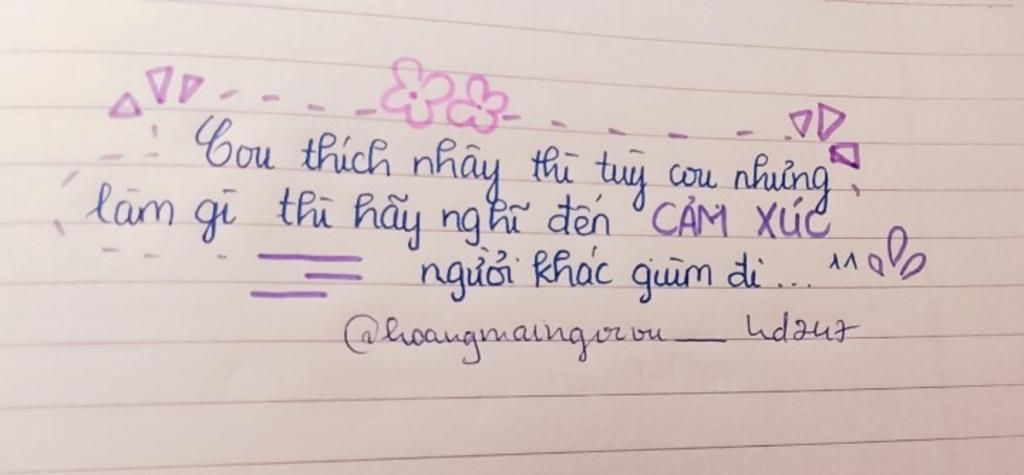 Cou thích nhây thì tuỳ cou nhưng
làm gì thì hãy nghĩ đến CẢM XÚC
người khác giùm đi... ^^